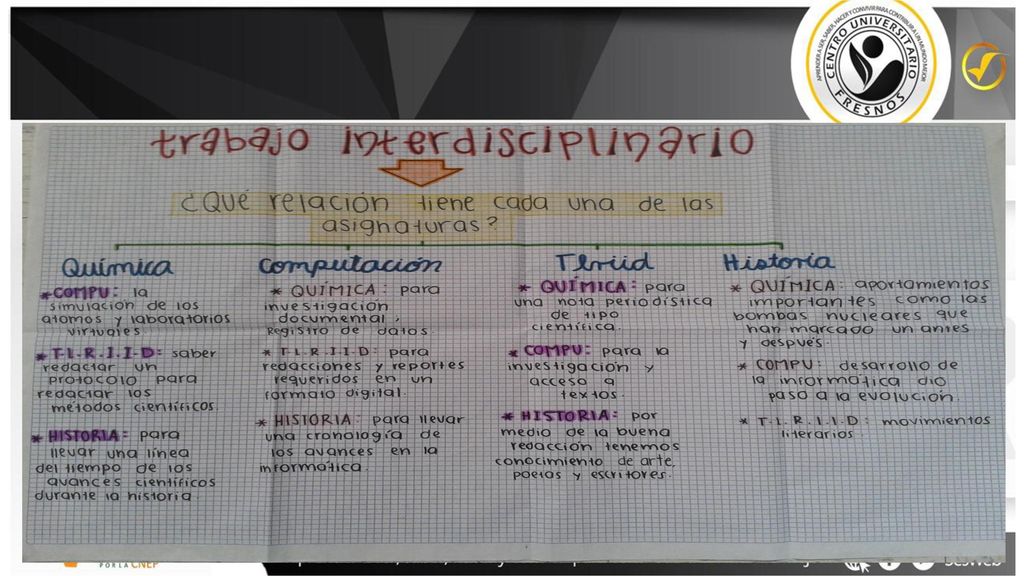 APRENDER A SER, SABER, HACER Y CONVIVIR PARA CONTRIBUIR A UN MUNDO MEJOR
CENTRO UNIVERSITARIO
FRESNOS
trabajo interdisciplinario
¿Qué relación tiene cada una de las
asignaturas?
Química
*COMPU: la
simulación de los
atomos y laboratorios
virtuales.
*T.L.R.I.I.D: saber
redactar un
protocolo para
redactar los
métodos científicos.
*HISTORIA: para
llevar una línea
del tiempo de los
avances científicos
durante la historia.
Computación
* QUÍMICA: para
investigación
documental,
Registro de datos.
* T.L.R.I.I.D: para
redacciones y reportes
requeridos en un
formato digital.
* HISTORIA: para llevar
una cronología de
los avances en la
informatica.
Tlriid
* QUÍMICA: para
una nota periodística
de tipo
científica.
* COMPU: para la
investigación y
acceso a
textos.
* HISTORIA: por
medio de la buena
redacción tenemos
conocimiento de arte,
poetas y escritores.
Historia
* QUÍMICA: aportamientos
importantes como las
bombas nucleares que
han marcado un antes
y después.
* COMPU: desarrollo de
la informatica dio
paso a la evolución.
* T.L.R.I.I.D: movimientos
literarios.
POR LA CNEP